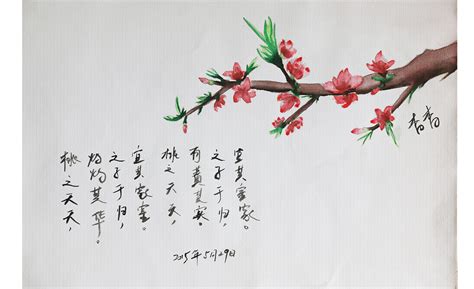 桃之夭夭，
灼灼其华。
之子于归，
宜其家室。
桃之夭夭，
有蕡其实。
之子于归，
宜其室家。
2015年5月29日
香香